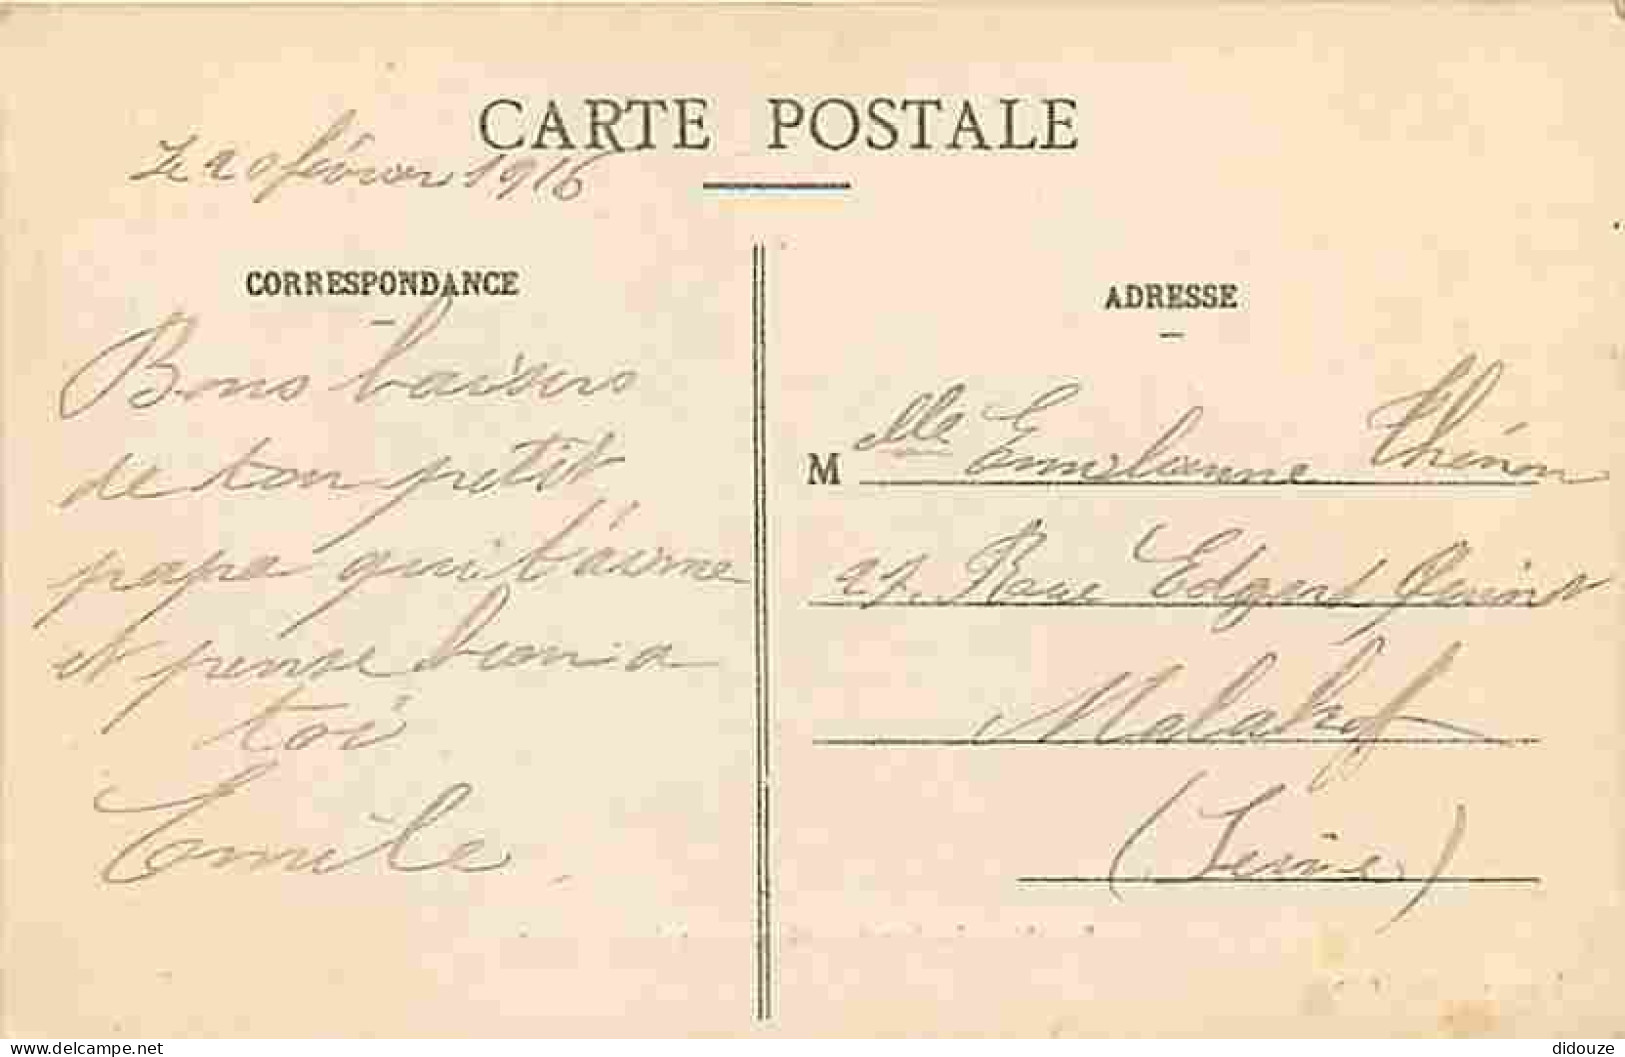 CARTE POSTALE
Le 20 février 1916
CORRESPONDANCE
Bons baisers
de ton petit
papa qui t'aime
et pense bien a
toi
Emile.
ADRESSE
Melle Emilienne Thénon
27. Rue Edgard Quinet
Malakof
(Seine)
delcampe.net
didouze